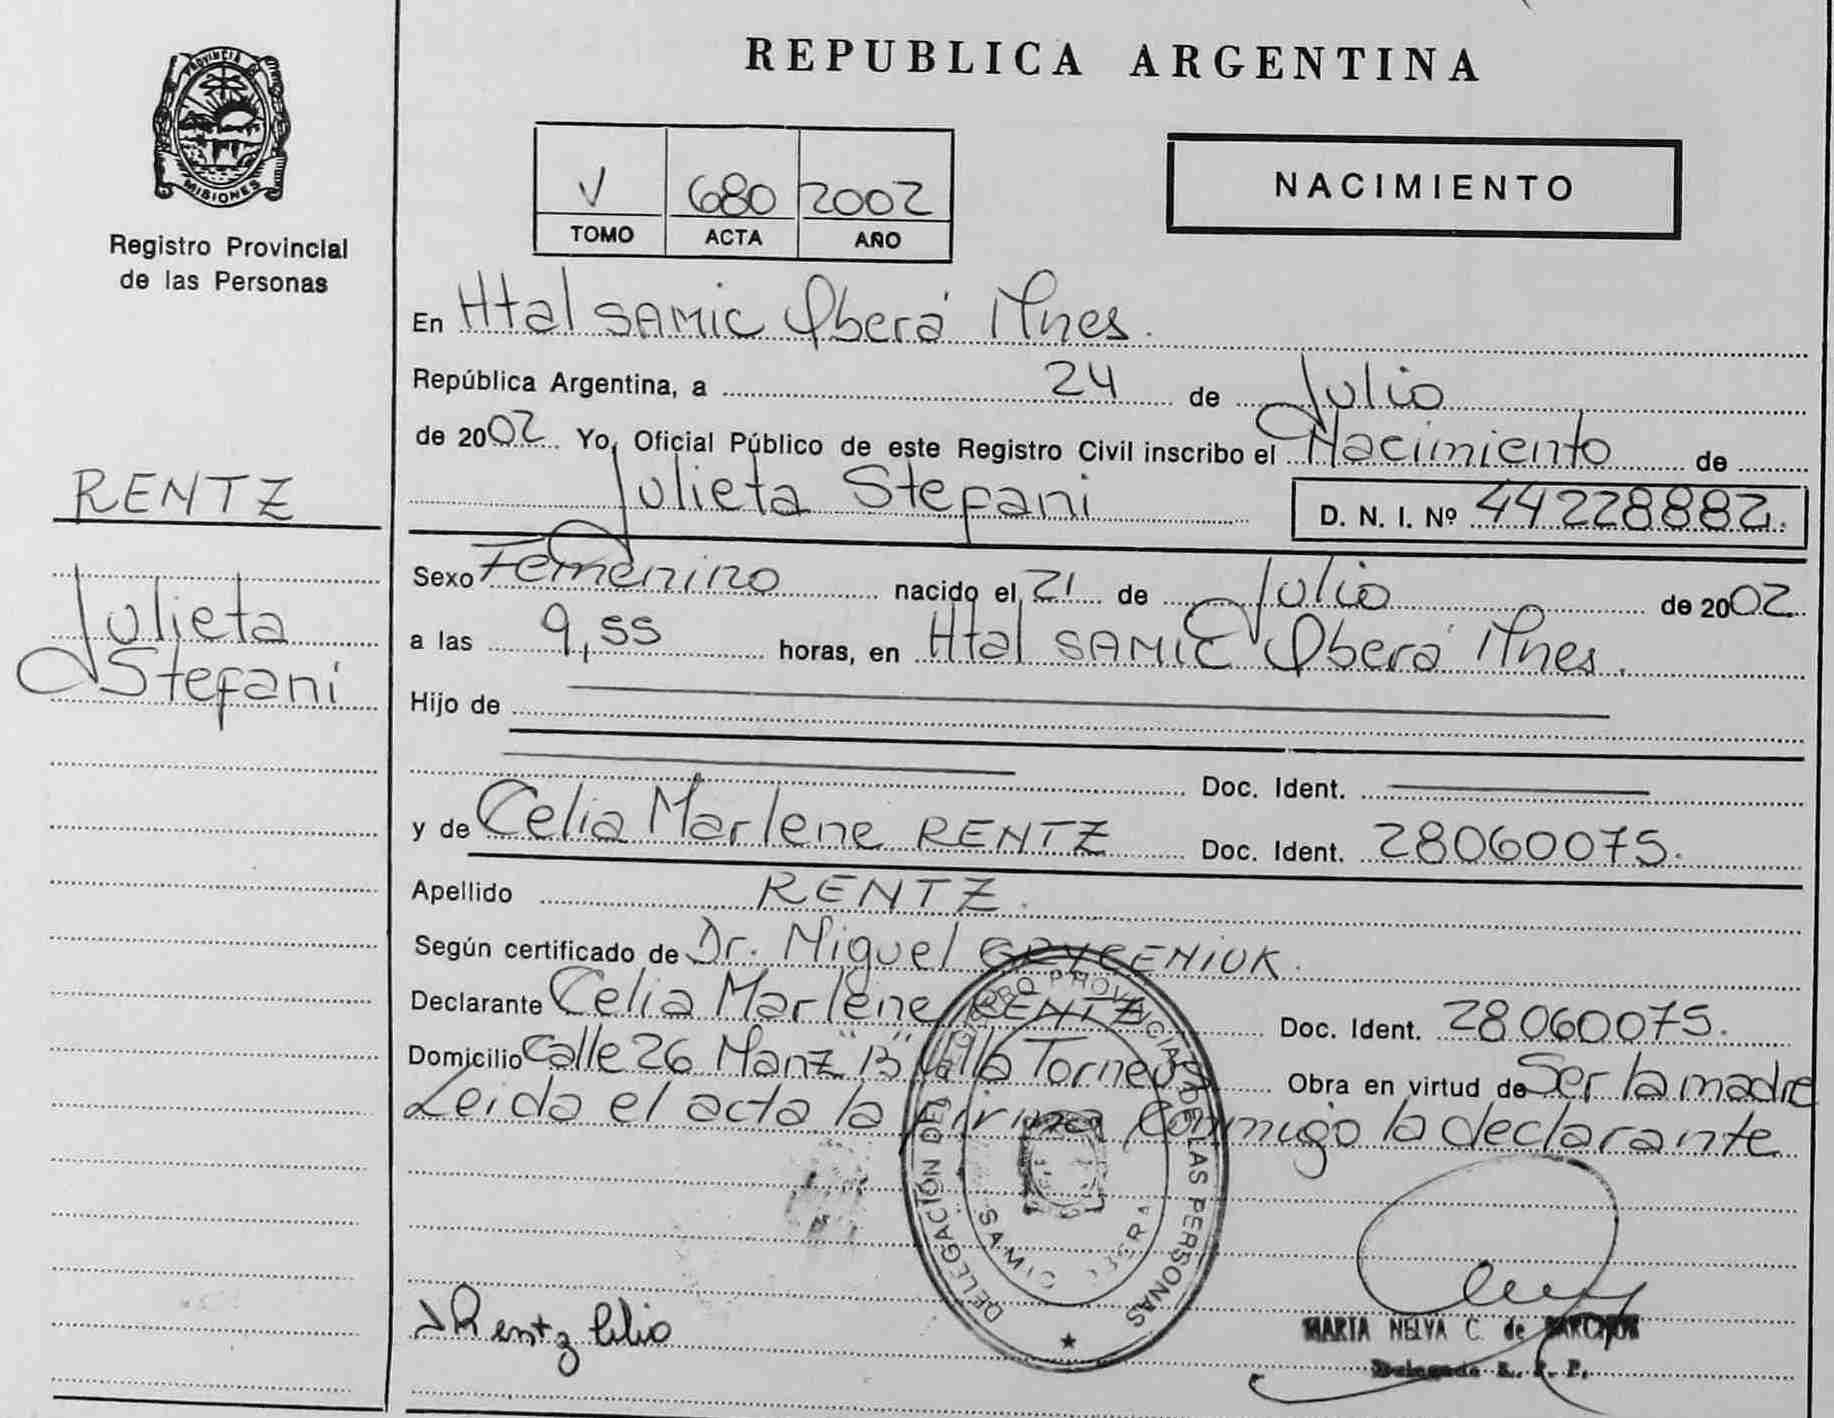 PROVINCIA DE
MISIONES
Registro Provincial
de las Personas
RENTZ
Julieta
Stefani
REPUBLICA ARGENTINA
V 680 2002
TOMO ACTA AÑO
NACIMIENTO
En Htal SAMIC Oberá Mnes.
República Argentina, a 24 de Julio
de 2002 Yo, Oficial Público de este Registro Civil inscribo el Nacimiento de
Julieta Stefani D. N. I. Nº 44228882.
Sexo Femenino nacido el 21 de Julio de 2002
a las 9,55 horas, en Htal SAMIC Oberá Mnes.
Hijo de
Doc. Ident.
y de Celia Marlene RENTZ Doc. Ident. 28060075.
Apellido RENTZ.
Según certificado de Dr. Miguel
Declarante Celia Marlene RENTZ Doc. Ident. 28060075.
Domicilio Calle 26 Manz "B" Villa Torneus Obra en virtud de Ser la madre
Leida el acta la firma conmigo la declarante
DELEGACIÓN DEL REGISTRO PROVINCIAL DE LAS PERSONAS
SAMIC OBERA
Rentz Celia
MARIA NELVA C. de
Delegada R. P. P.